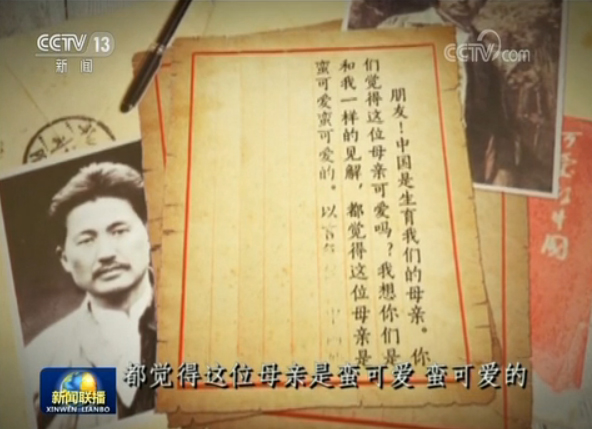 CCTV 13
新闻
CCTV.com
朋友！中国是生育我们的母亲。你
们觉得这位母亲可爱吗？我想你们是
和我一样的见解，都觉得这位母亲是
蛮可爱蛮可爱的。以
可爱的中国
都觉得这位母亲是蛮可爱 蛮可爱的
新闻联播
XINWEN LIANBO